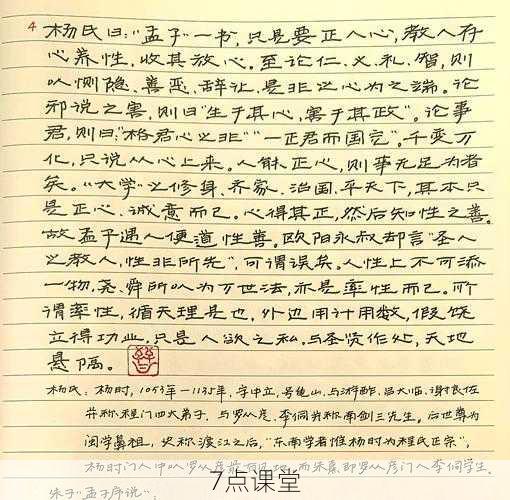 4 杨氏曰:"孟子"一书,只是要正人心,教人存
心养性,收其放心。至论仁、义、礼、智,则
以恻隐、善恶、辞让、是非之心为之端。论
邪说之害,则曰"生于其心,害于其政"。论事
君,则曰:"格君心之非""一正君而国定"。千变万
化,只说从心上来。人能正心,则事无足为者
矣。"大学"之修身、齐家、治国、平天下,其本只
是正心、诚意而已。心得其正,然后知性之善。
故孟子遇人便道性善。欧阳永叔却言"圣人
之教人,性非所先",可谓误矣。人性上不可添
一物,尧、舜所以为万世法,亦是率性而已。所
谓率性,循天理是也,外边用计用数,假饶
立得功业,只是人欲之私,与圣贤作处,天地
悬隔。
杨氏:杨时,1053年-1135年,字中立,号龟山,与游酢、吕大临、谢良佐
并称程门四大弟子,与罗从彦、李侗并称南剑三先生。后世尊为
闽学鼻祖,史称渡江之后,"东南学者惟杨时为程氏正宗",
杨时门人中以罗从彦最有见地,而朱熹即罗从彦门人李侗学生。
朱子"孟子序说":
7点课堂